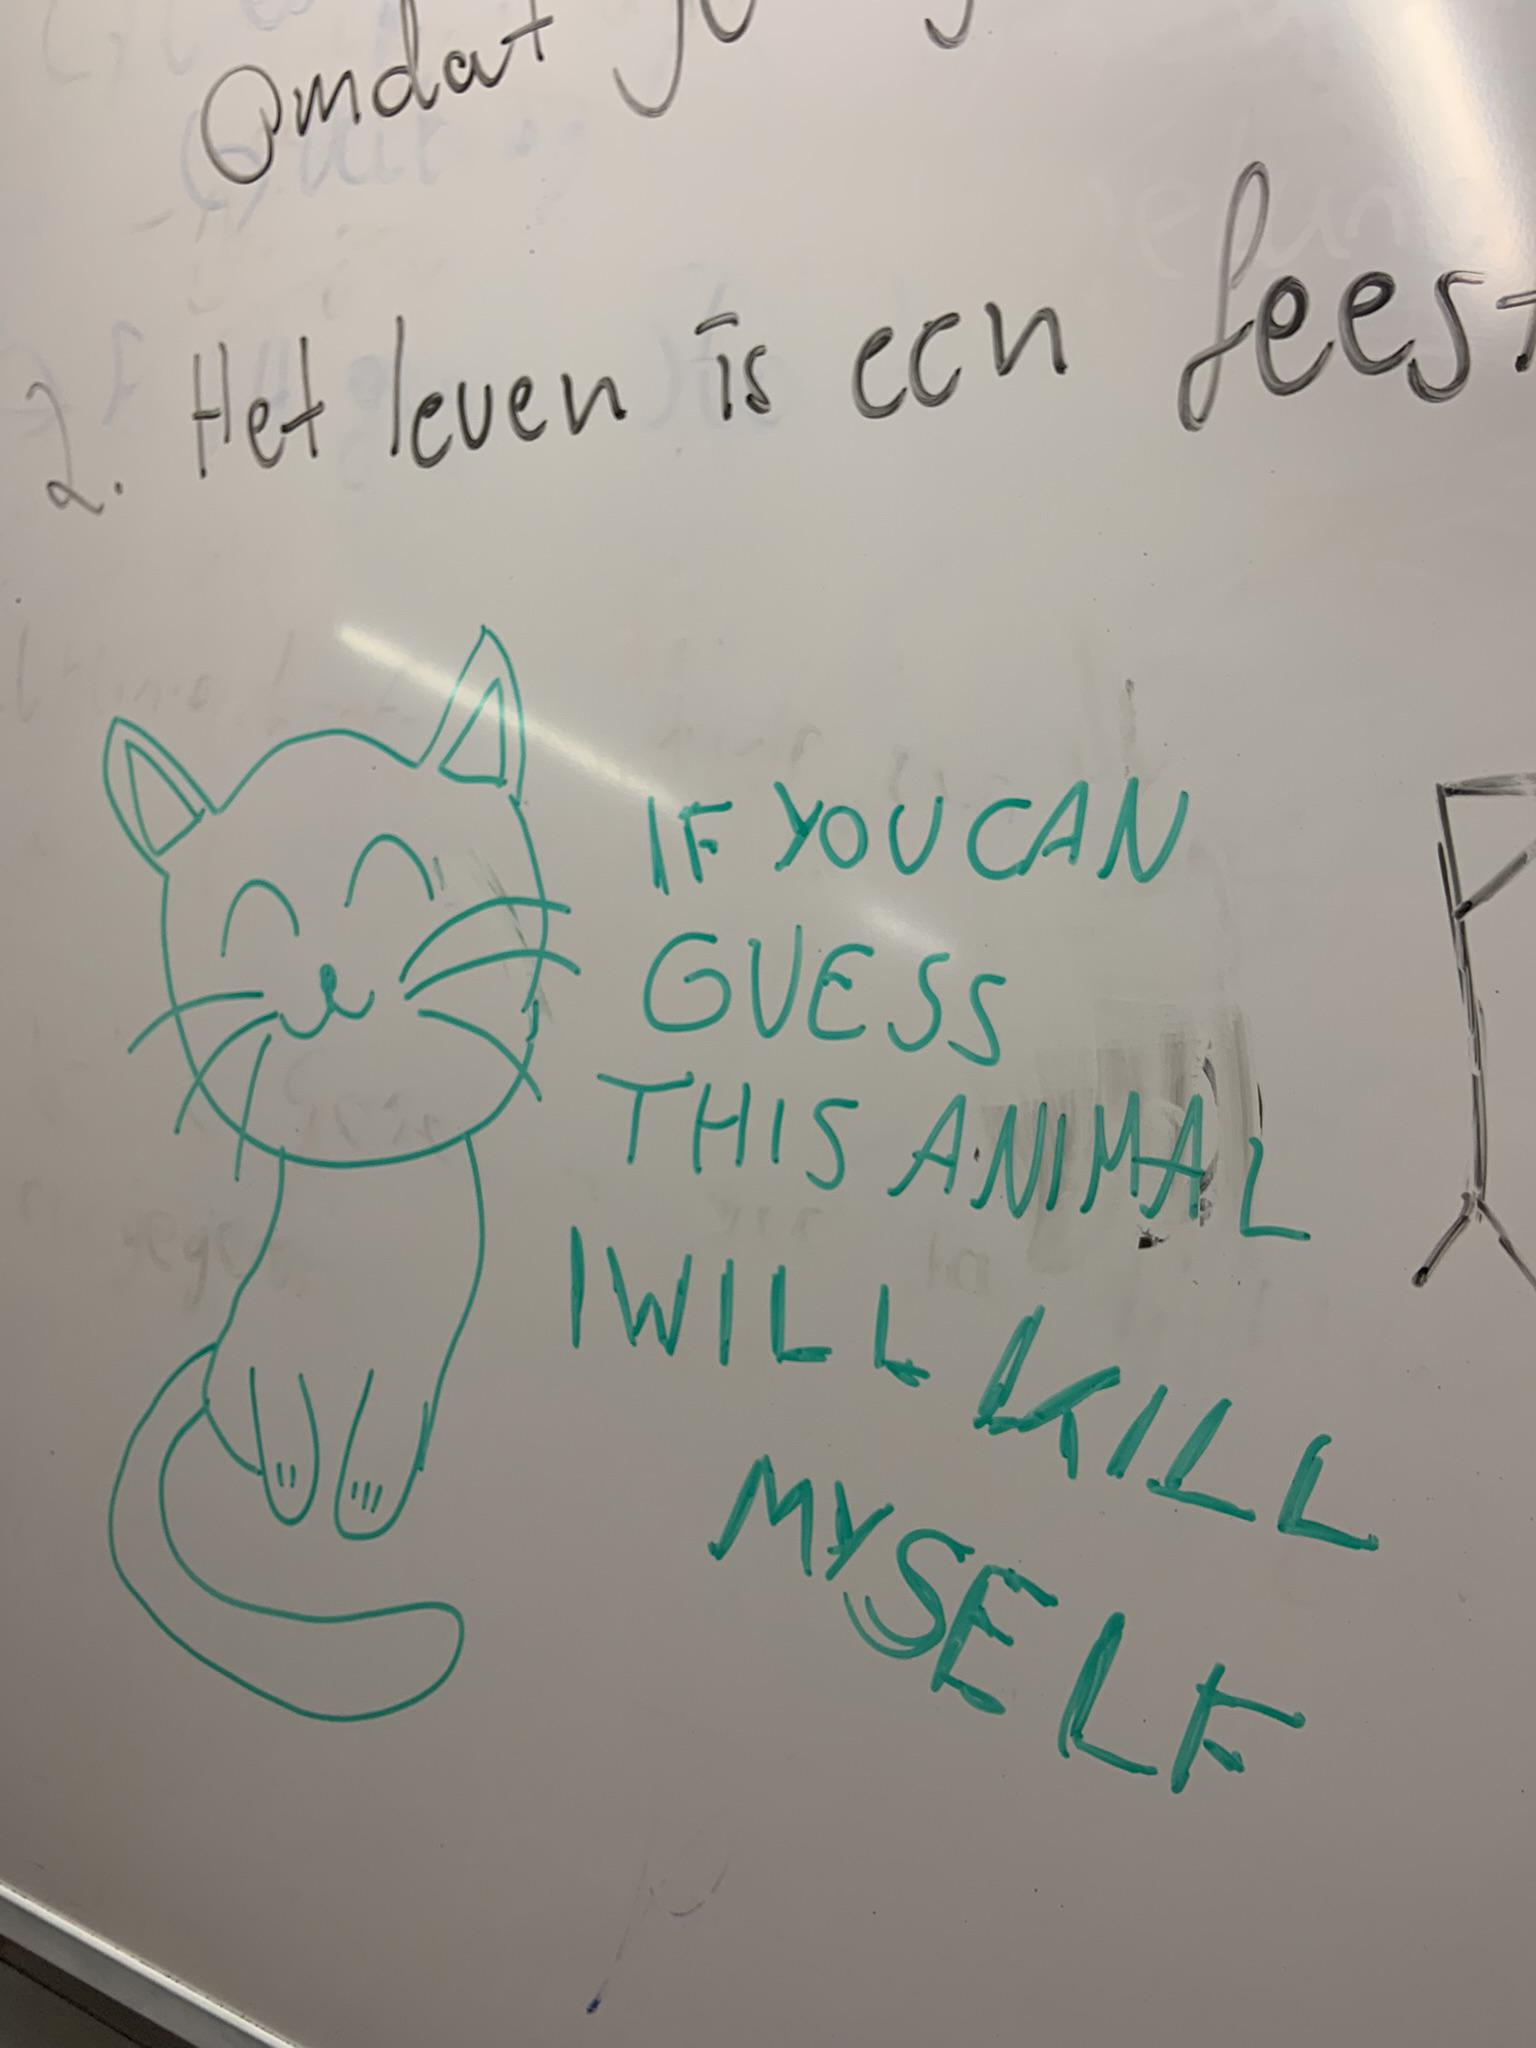 Omdat
2. Het leven is een feest
IF YOU CAN
GUESS
THIS ANIMAL
I WILL KILL
MYSELF